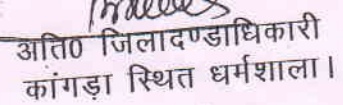 अति0 जिलादण्डाधिकारी
कांगड़ा स्थित धर्मशाला।